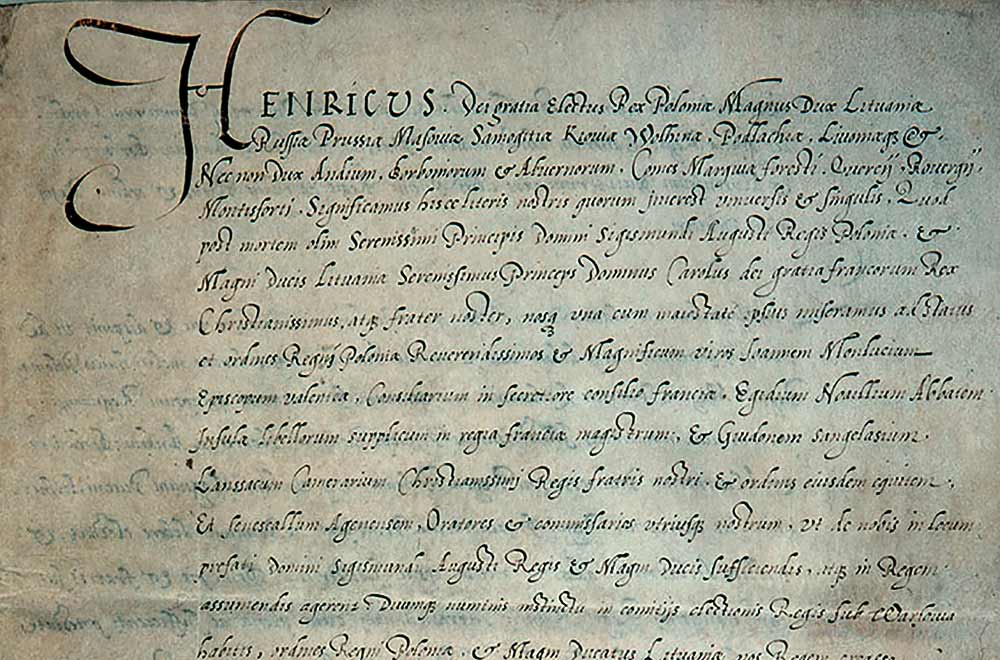 HENRICUS. Dei gratia Electus Rex Poloniæ Magnus Dux Lituaniæ
Russiæ Prussiæ Masoviæ Samogitiæ Kioviæ Wolhinæ, Podlachiæ, Livoniæqȝ &.
Nec non Dux Andium, Borboniorum & Alvernorum, Comes Marquiæ foresti, Quercij, Rovergij,
Montisforti, Significamus hisce literis nostris quorum interest universis & singulis, Quod
post mortem olim Serenissimi Principis Domini Sigismundi Augusti Regis Poloniæ. &.
Magni Ducis Lituaniæ Serenissimus Princeps Dominus Carolus dei gratia francorum Rex
Christianissimus, atqȝ frater noster, nosqȝ una cum maiestate ipsius miseramus ad status
et ordines Regnj Poloniæ Reverendissimos & Magnificum viros Ioannem Monlucium
Episcopum valentiæ, Consiliarium in secretiore consilio franciæ, Egidium Noallium Abbatem
Insulæ libellorum supplicum in regia franciæ magistrum, & Guidonem sangelasium
Lanssacum Camerarium Christianissimj Regis fratris nostri, & ordinis eiusdem equitem,
Et senescallum Agenensem, Oratores & commissarios utriusqȝ nostrum, ut de nobis in locum
prefati Domini Sigismundi Augusti Regis & Magni Ducis sufficiendis, atqȝ in Regem
assumendis agerent Divumqȝ numinis instinctu in comitijs electionis Regis sub Warsovia
habitis, ordines Regni Poloniæ, & Magni Ducatus Lituaniæ nos Regem